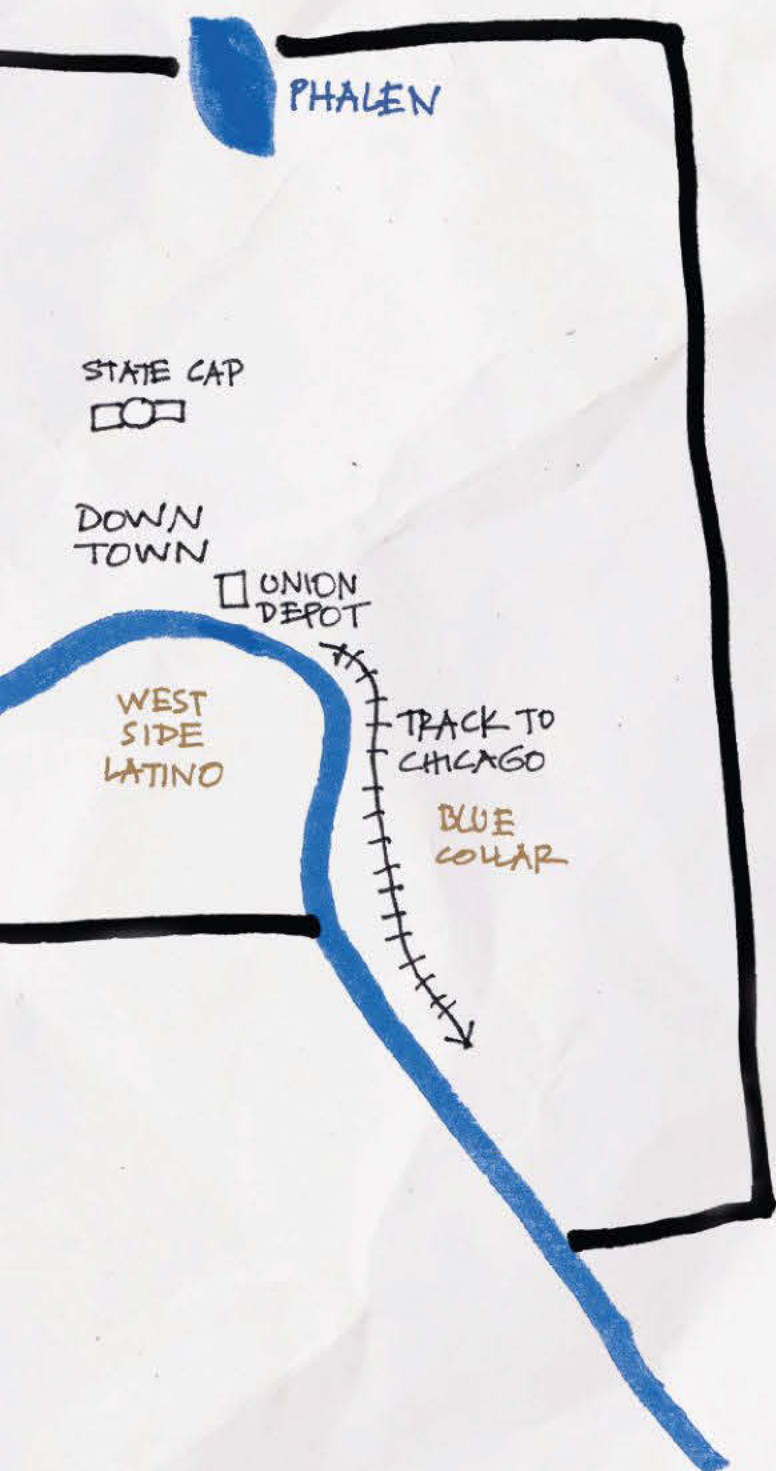 PHALEN
STATE CAP
DOWN
TOWN
UNION
DEPOT
WEST
SIDE
LATINO
TRACK TO
CHICAGO
BLUE
COLLAR